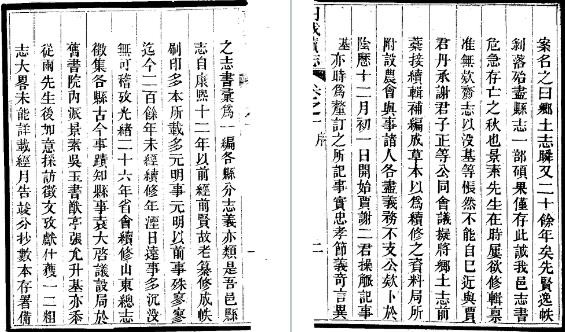 之志書彙為一編各縣分志義亦類是吾邑縣
志自康熙十二年以前經前賢故老纂修成帙
刷印多本所載多元明事元明以前事殊寥寥
迄今二百餘年未經續修年湮日遠事多沉没
無可稽攷光緒二十六年省會續修山東總志
徵集各縣古今事蹟知縣事袁大啓議設局於
舊書院內派景素吳王書猷亭張尤升基亦秉
從兩先生後加意採訪徵文攷獻什獲一二粗
志大畧未能詳載經月告竣分抄數本存署備
續志 卷之一 序 二
案名之曰鄉土志瞬又二十餘年矣先賢逸帙
剝落殆盡縣志一部碩果僅存此誠我邑志書
危急存亡之秋也景素先生在時屢欲修輯稟
准無欵齎志以没基等悵然不能自已近與賈
君丹承謝君子正等公同會議擬將鄉土志前
葉接續輯補編成草本以為續修之資料局所
附設農會與事諸人各盡義務不支公欵卜於
陰歷十二月初一日開始賈謝二君操觚記事
基亦時為釐訂之所記事實忠孝節義奇言異